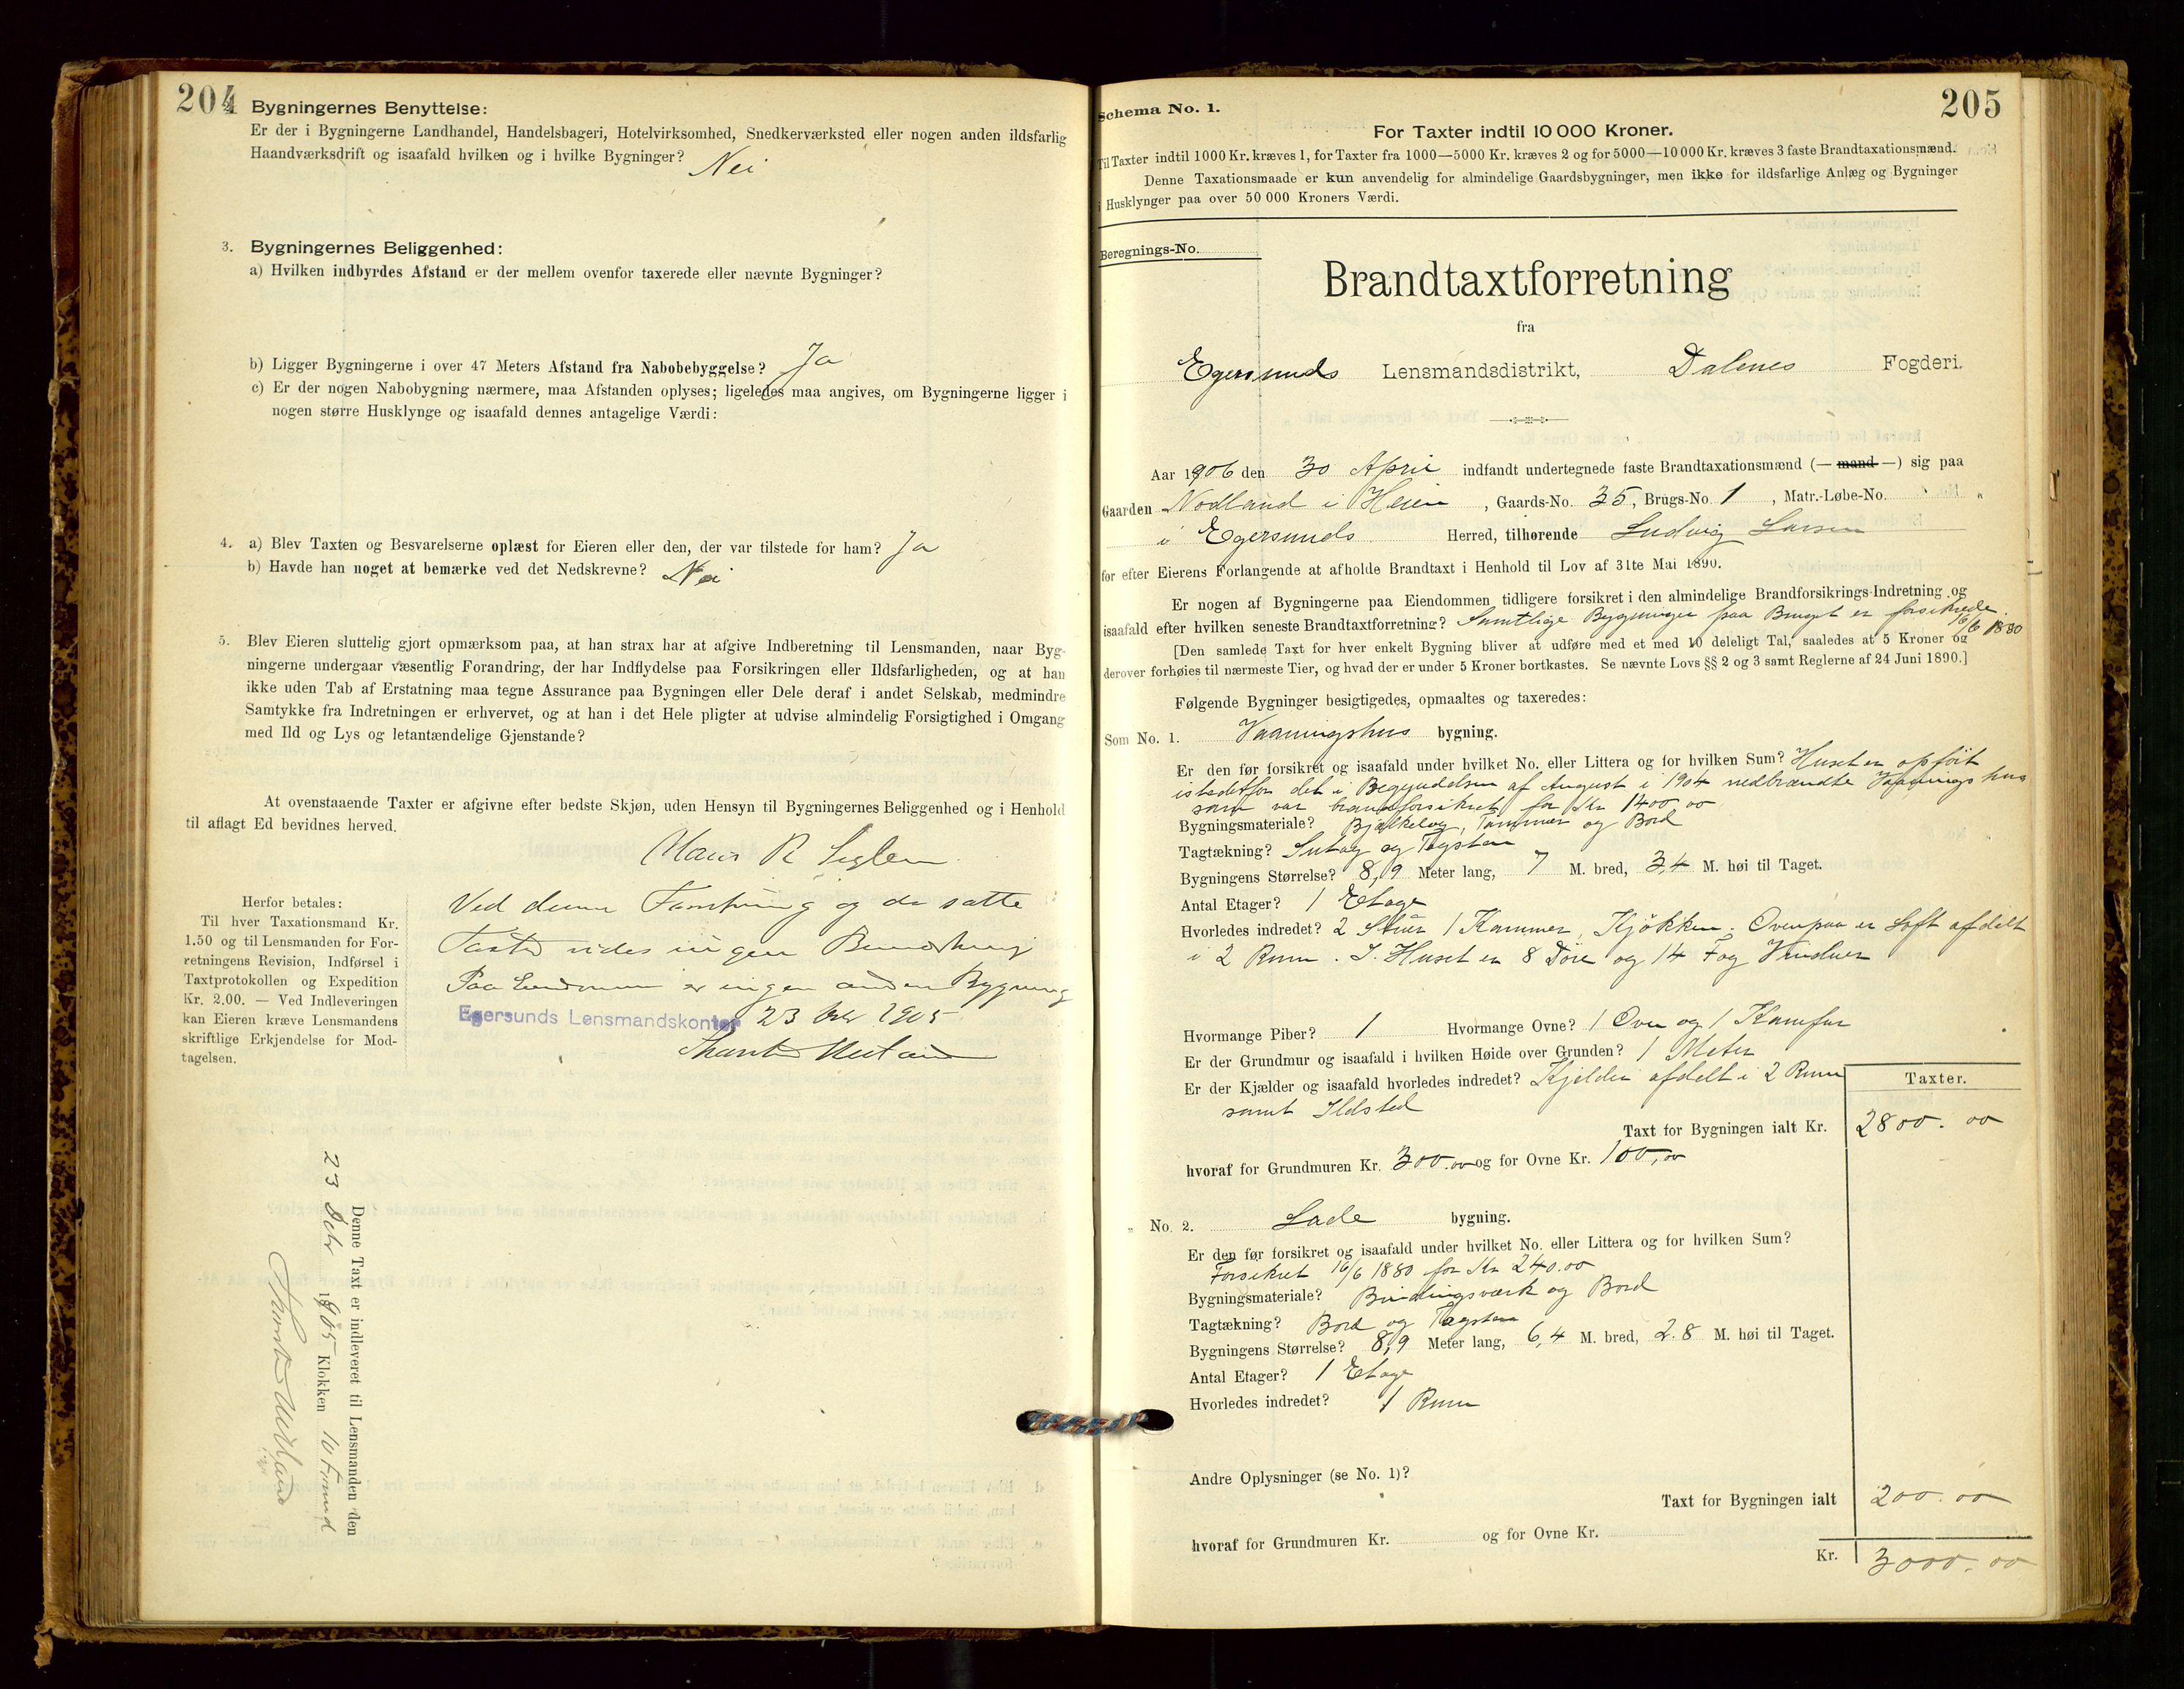 204
Bygningernes Benyttelse:
Er der i Bygningerne Landhandel, Handelsbageri, Hotelvirksomhed, Snedkerværksted eller nogen anden ildsfarlig
Haandværksdrift og isaafald hvilken og i hvilke Bygninger? Nei
3. Bygningernes Beliggenhed:
a) Hvilken indbyrdes Afstand er der mellem ovenfor taxerede eller nævnte Bygninger?
b) Ligger Bygningerne i over 47 Meters Afstand fra Nabobebyggelse? Ja
c) Er der nogen Nabobygning nærmere, maa Afstanden oplyses; ligeledes maa angives, om Bygningerne ligger i
nogen større Husklynge og isaafald dennes antagelige Værdi:
4. a) Blev Taxten og Besvarelserne oplæst for Eieren eller den, der var tilstede for ham? Ja
b) Havde han noget at bemærke ved det Nedskrevne? Nei
5. Blev Eieren sluttelig gjort opmærksom paa, at han strax har at afgive Indberetning til Lensmanden, naar Byg-
ningerne undergaar væsentlig Forandring, der har Indflydelse paa Forsikringen eller Ildsfarligheden, og at han
ikke uden Tab af Erstatning maa tegne Assurance paa Bygningen eller Dele deraf i andet Selskab, medmindre
Samtykke fra Indretningen er erhvervet, og at han i det Hele pligter at udvise almindelig Forsigtighed i Omgang
med Ild og Lys og letantændelige Gjenstande?
At ovenstaaende Taxter er afgivne efter bedste Skjøn, uden Hensyn til Bygningernes Beliggenhed og i Henhold
til aflagt Ed bevidnes herved.
R
Herfor betales:
Til hver Taxationsmand Kr.
1.50 og til Lensmanden for For-
retningens Revision, Indførsel i
Taxtprotokollen og Expedition
Kr. 2.00. — Ved Indleveringen
kan Eieren kræve Lensmandens
skriftlige Erkjendelse for Mod-
tagelsen.
Ved denne og de satte
ingen
Paa er ingen anden Bygning
Egersunds Lensmandskontor 23 1905
Denne Taxt er indleveret til Lensmanden den
23 1905 Klokken 10
205
Schema No. 1.
For Taxter indtil 10 000 Kroner.
Til Taxter indtil 1000 Kr. kræves 1, for Taxter fra 1000—5000 Kr. kræves 2 og for 5000—10 000 Kr. kræves 3 faste Brandtaxationsmænd.
Denne Taxationsmaade er kun anvendelig for almindelige Gaardsbygninger, men ikke for ildsfarlige Anlæg og Bygninger
i Husklynger paa over 50 000 Kroners Værdi.
Beregnings-No.
Brandtaxtforretning
fra
Egersunds Lensmandsdistrikt, Dalenes Fogderi.
Aar 1906 den 30 April indfandt undertegnede faste Brandtaxationsmænd (— mand —) sig paa
Gaarden Nodland i Heien, Gaards-No. 35, Brugs-No. 1, Matr.-Løbe-No. "
i Egersunds Herred, tilhørende Ludvig Larsen
for efter Eierens Forlangende at afholde Brandtaxt i Henhold til Lov af 31te Mai 1890.
Er nogen af Bygningerne paa Eiendommen tidligere forsikret i den almindelige Brandforsikrings-Indretning og
isaafald efter hvilken seneste Brandtaxtforretning? Samtlige Bygninger paa Bruget er forsikrede 16/6 1880
[Den samlede Taxt for hver enkelt Bygning bliver at udføre med et med 10 deleligt Tal, saaledes at 5 Kroner og
derover forhøies til nærmeste Tier, og hvad der er under 5 Kroner bortkastes. Se nævnte Lovs §§ 2 og 3 samt Reglerne af 24 Juni 1890.]
Følgende Bygninger besigtigedes, opmaaltes og taxeredes:
Som No. 1. Vaaningshus bygning.
Er den før forsikret og isaafald under hvilket No. eller Littera og for hvilken Sum? Huset er opført
istedetfor det i Begyndelsen af August i 1904 nedbrændte Vaaningshus
som var brandforsikret for Kr 1400.00
Bygningsmateriale? Bjælkelag, Tømmer og Bord
Tagtækning? Sutag og Tagsten
Bygningens Størrelse? 8,9 Meter lang, 7 M. bred, 3,4 M. høi til Taget.
Antal Etager? 1 Etage
Hvorledes indredet? 2 Stuer 1 Kammer, Kjøkken. Ovenpaa er Loft afdelt
i 2 Rum. I Huset er 8 Døre og 14 Fag Vinduer
Hvormange Piber? 1 Hvormange Ovne? 1 Ovn og 1 Komfur
Er der Grundmur og isaafald i hvilken Høide over Grunden? 1 Meter
Er der Kjælder og isaafald hvorledes indredet? Kjelder afdelt i 2 Rum
samt Ildsted
Taxter.
Taxt for Bygningen ialt Kr. 2800.00
hvoraf for Grundmuren Kr. 300.00 og for Ovne Kr. 100,00
" No. 2. Lade bygning.
Er den før forsikret og isaafald under hvilket No. eller Littera og for hvilken Sum?
Forsikret 16/6 1880 for Kr 240.00
Bygningsmateriale? Bindingsværk og Bord
Tagtækning? Bord og Tagsten
Bygningens Størrelse? 8,9 Meter lang, 6,4 M. bred, 2.8 M. høi til Taget.
Antal Etager? 1 Etage
Hvorledes indredet? 1 Rum
Andre Oplysninger (se No. 1)?
Taxt for Bygningen ialt 200.00
hvoraf for Grundmuren Kr. og for Ovne Kr.
Kr. 3000.00